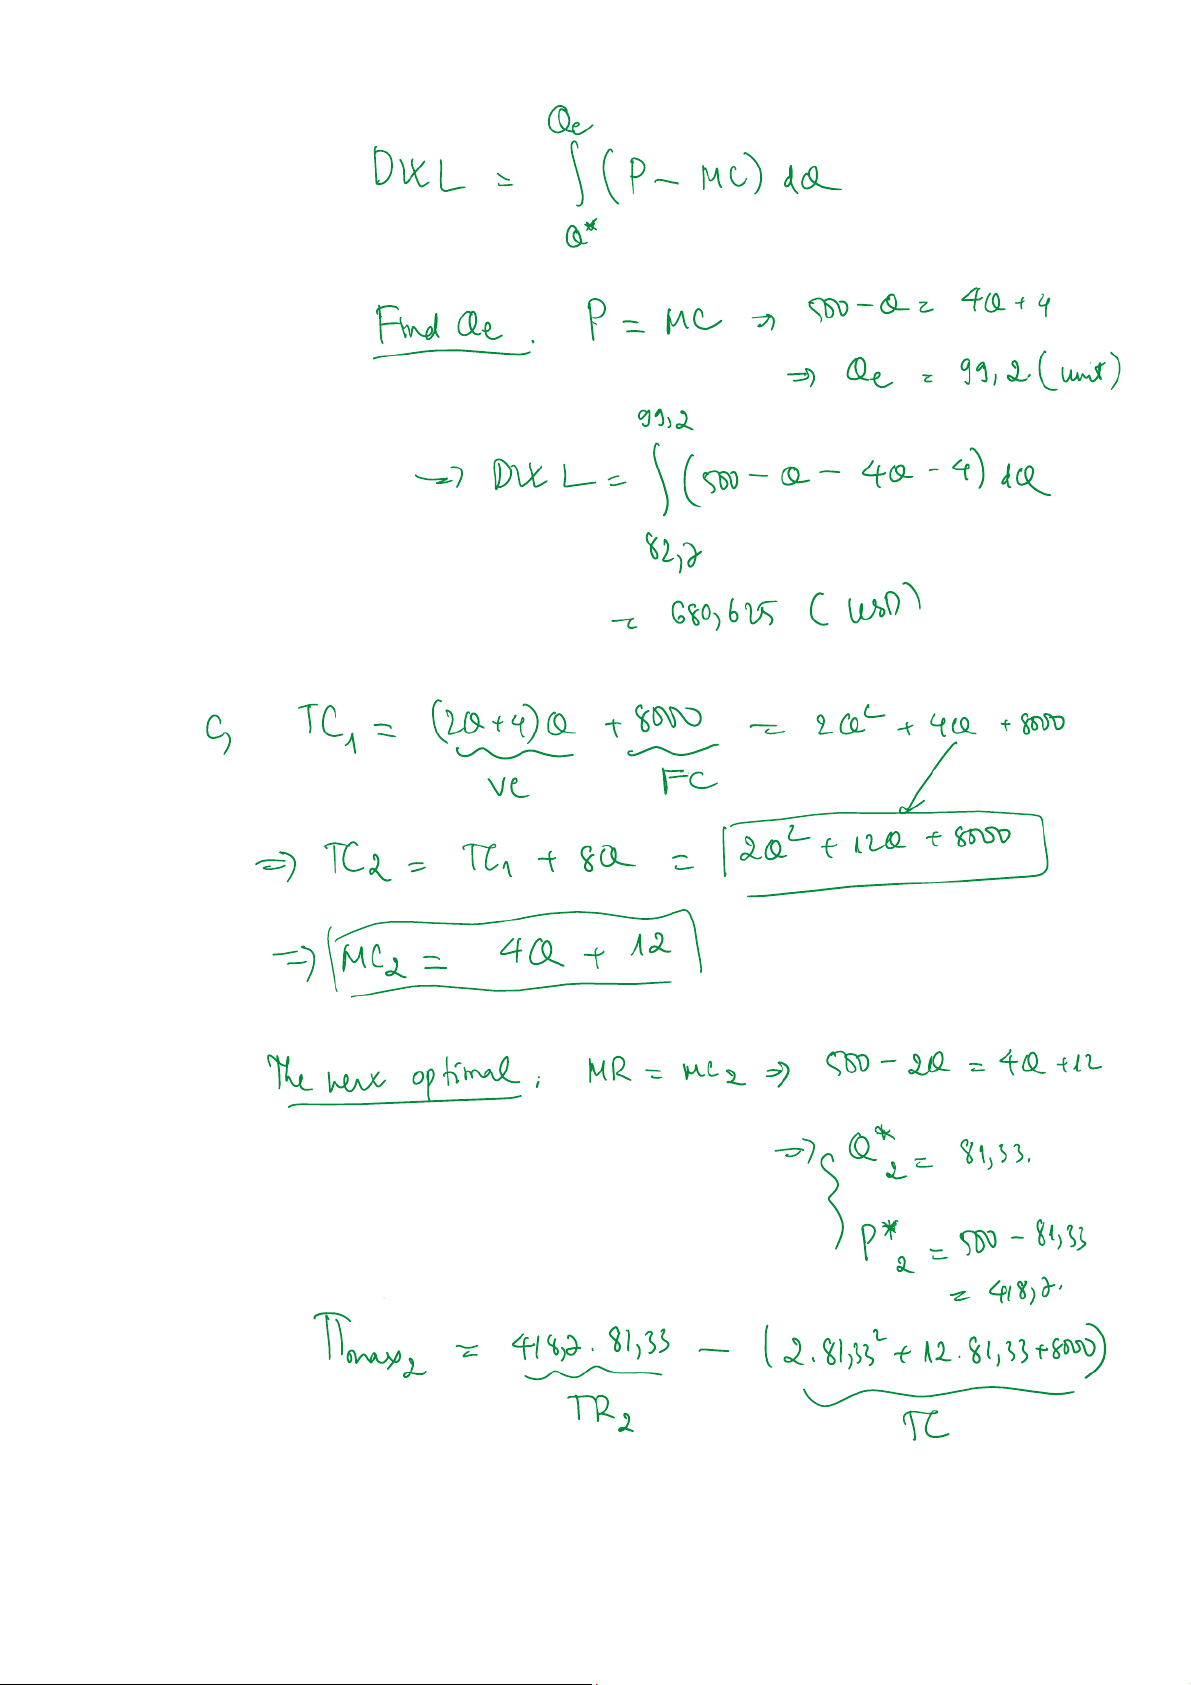 DWL = ∫ (P - MC) dQ
Qe
Q*
Find Qe. P = MC => 500 - Q = 4Q + 4
=> Qe = 99,2 (unit)
99,2
=> DWL = ∫ (500 - Q - 4Q - 4) dQ
82,7
= 680,625 (USD)
c, TC1 = (2Q+4)Q + 8000 = 2Q² + 4Q + 8000
VC FC
=> TC2 = TC1 + 8Q = 2Q² + 12Q + 8000
=> MC2 = 4Q + 12
The next optimal: MR = MC2 => 500 - 2Q = 4Q + 12
=> { Q*2 = 81,33.
P*2 = 500 - 81,33
= 418,7.
Πmax2 = 418,7 . 81,33 - (2.81,33² + 12.81,33 + 8000)
TR2 TC